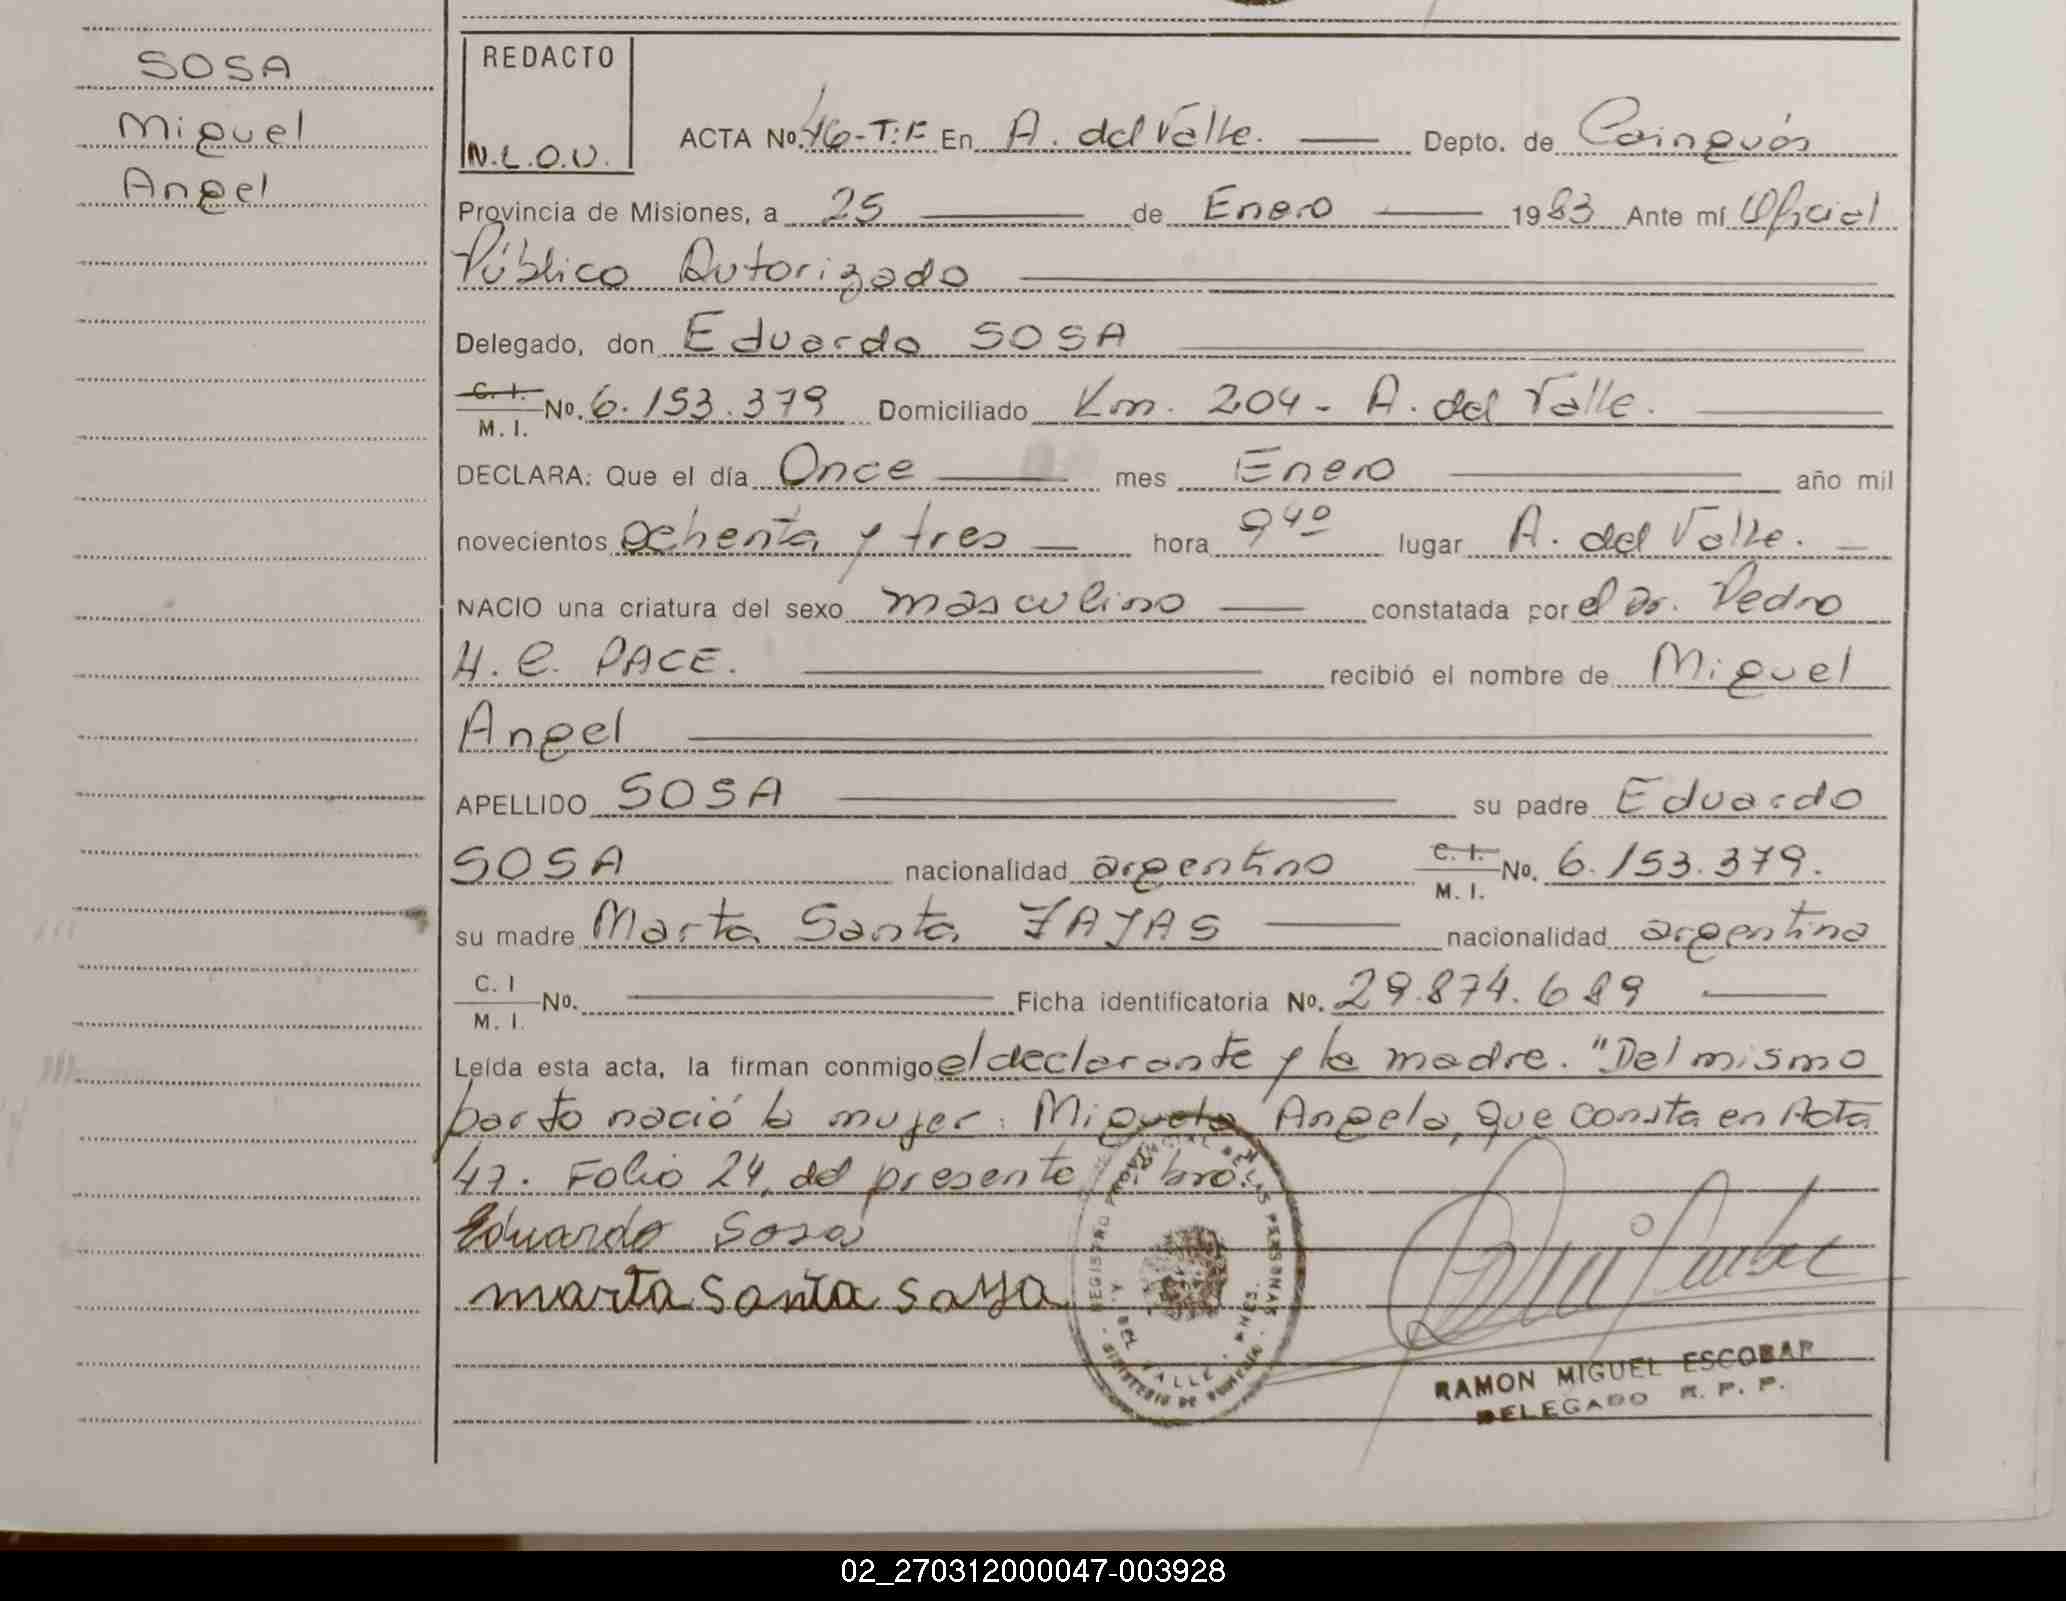 SOSA
Miguel
Angel
REDACTO
N.L.O.V.
ACTA No. 46-T:F En A. del Valle. Depto. de Cainguás
Provincia de Misiones, a 25 de Enero 1983 Ante mí Oficial
Público Autorizado
Delegado, don Eduardo SOSA
C. I. M. I. No. 6.153.379 Domiciliado Km. 204 - A. del Valle.
DECLARA: Que el día Once mes Enero año mil
novecientos ochenta y tres hora 9 40 lugar A. del Valle.
NACIO una criatura del sexo masculino constatada por el Dr. Pedro
H. C. PACE. recibió el nombre de Miguel
Angel
APELLIDO SOSA su padre Eduardo
SOSA nacionalidad argentino C. I. M. I. No. 6.153.379.
su madre Marta Santa nacionalidad argentina
C. I M. I. No. Ficha identificatoria No. 29.874.689
Leída esta acta, la firman conmigo el declarante y la madre. "Del mismo
parto nació la mujer: Miguela Angela, que consta en Acta
47. Folio 24, del presente libro."
Eduardo Sosa
marta santa saya
REGISTRO PROVINCIAL DE LAS PERSONAS
DEL VALLE
RAMON MIGUEL ESCOBAR
DELEGADO R. P. P.
02_270312000047-003928